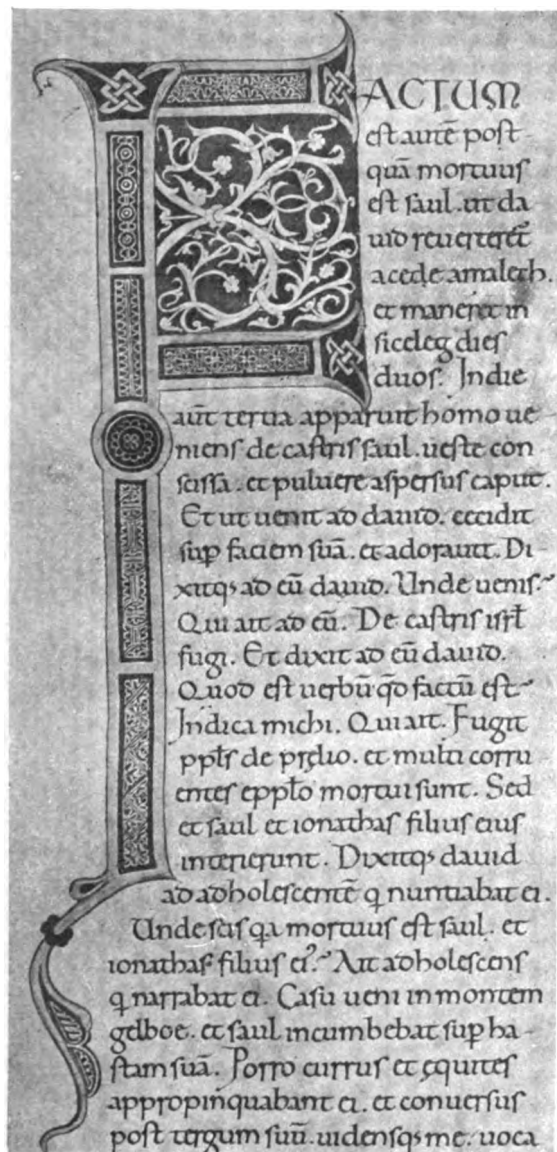 FACTUM
est autē post
quā mortuus
est saul. ut da
uid reuerteret̄
acede amalech.
et maneret in
siceleg dies
duos. Indie
aūt tertia apparuit homo ue
niens de castris saul. ueste con
scissa. et puluere aspersus caput.
Et ut uenit ad dauid. cecidit
sup̄ faciem suā. et adorauit. Di-
xitq; ad eū dauid. Unde uenis?
Qui ait ad eū. De castris isrł
fugi. Et dixit ad eū dauid.
Quod est uerbū qđ factū est?
Indica michi. Qui ait. Fugit
ppłs de pręlio. et multi corru
entes eppło mortui sunt. Sed
et saul et ionathas filius eius
interierunt. Dixitq; dauid
ad adholescentē q̄ nuntiabat ei.
Unde scis q̄a mortuus est saul. et
ionathas filius ei᾿? Ait adholescens
q̄ narrabat ei. Casu ueni in montem
gelboe. et saul incumbebat sup̄ ha-
stam suā. Porro currus et ęquites
appropinquabant ei. et conuersus
post tergum suū. uidensq; me. uoca